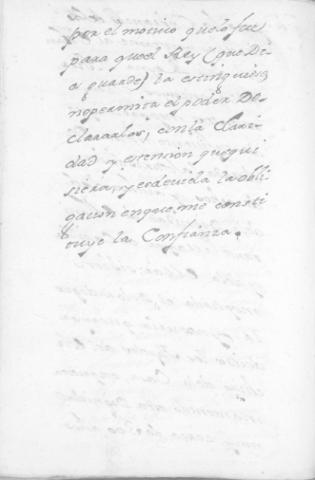 por el motivo quelo fue
para queel Rey (que Di-
s guarde) la estinguiese
nopermita el poder De-
clararlos, conla Clari-
dad y estencion quequi
siera, y esdevida la obli
gacion enque me consti
tuye la Confianza.